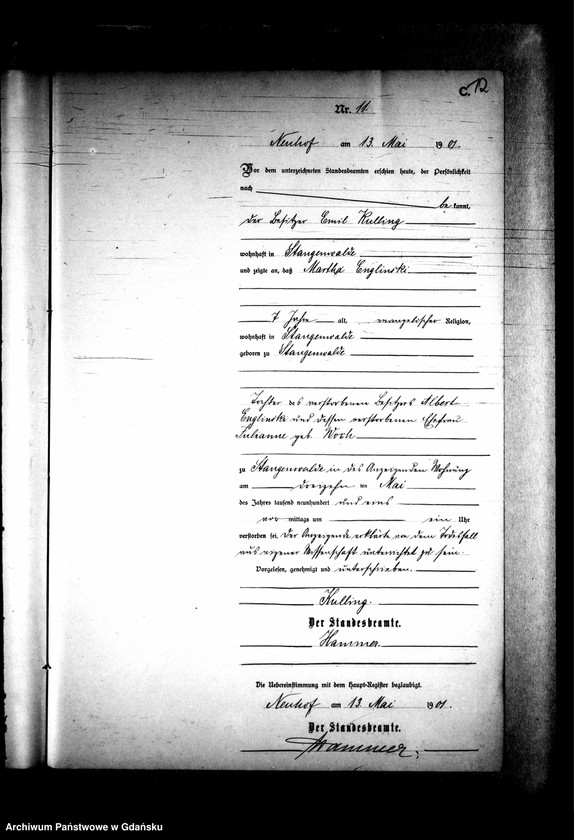 C. 12
Nr. 11.
Neuhof am 13. Mai 1901.
Vor dem unterzeichneten Standesbeamten erschien heute, der Persönlichkeit
nach
be kannt,
der Besitzer Emil Kulling
wohnhaft in Stangenwalde
und zeigte an, daß Martha Englinski
7 Jahre alt, evangelischer Religion,
wohnhaft in Stangenwalde
geboren zu Stangenwalde
Tochter des verstorbenen Besitzers Albert
Englinski und dessen verstorbenen Ehefrau
Julianne geb.
zu Stangenwalde in des Anzeigenden Wohnung
am dreizehn ten Mai
des Jahres tausend neunhundert und eins
vor mittags um ein Uhr
verstorben sei. Der Anzeigende erklärte von dem Todesfall
aus eigener Wissenschaft unterrichtet zu sein.
Vorgelesen, genehmigt und unterschrieben.
Kulling.
Der Standesbeamte.
Hammer.
Die Uebereinstimmung mit dem Haupt-Register beglaubigt.
Neuhof am 13. Mai 1901.
Der Standesbeamte.
Hammer.
Archiwum Państwowe w Gdańsku